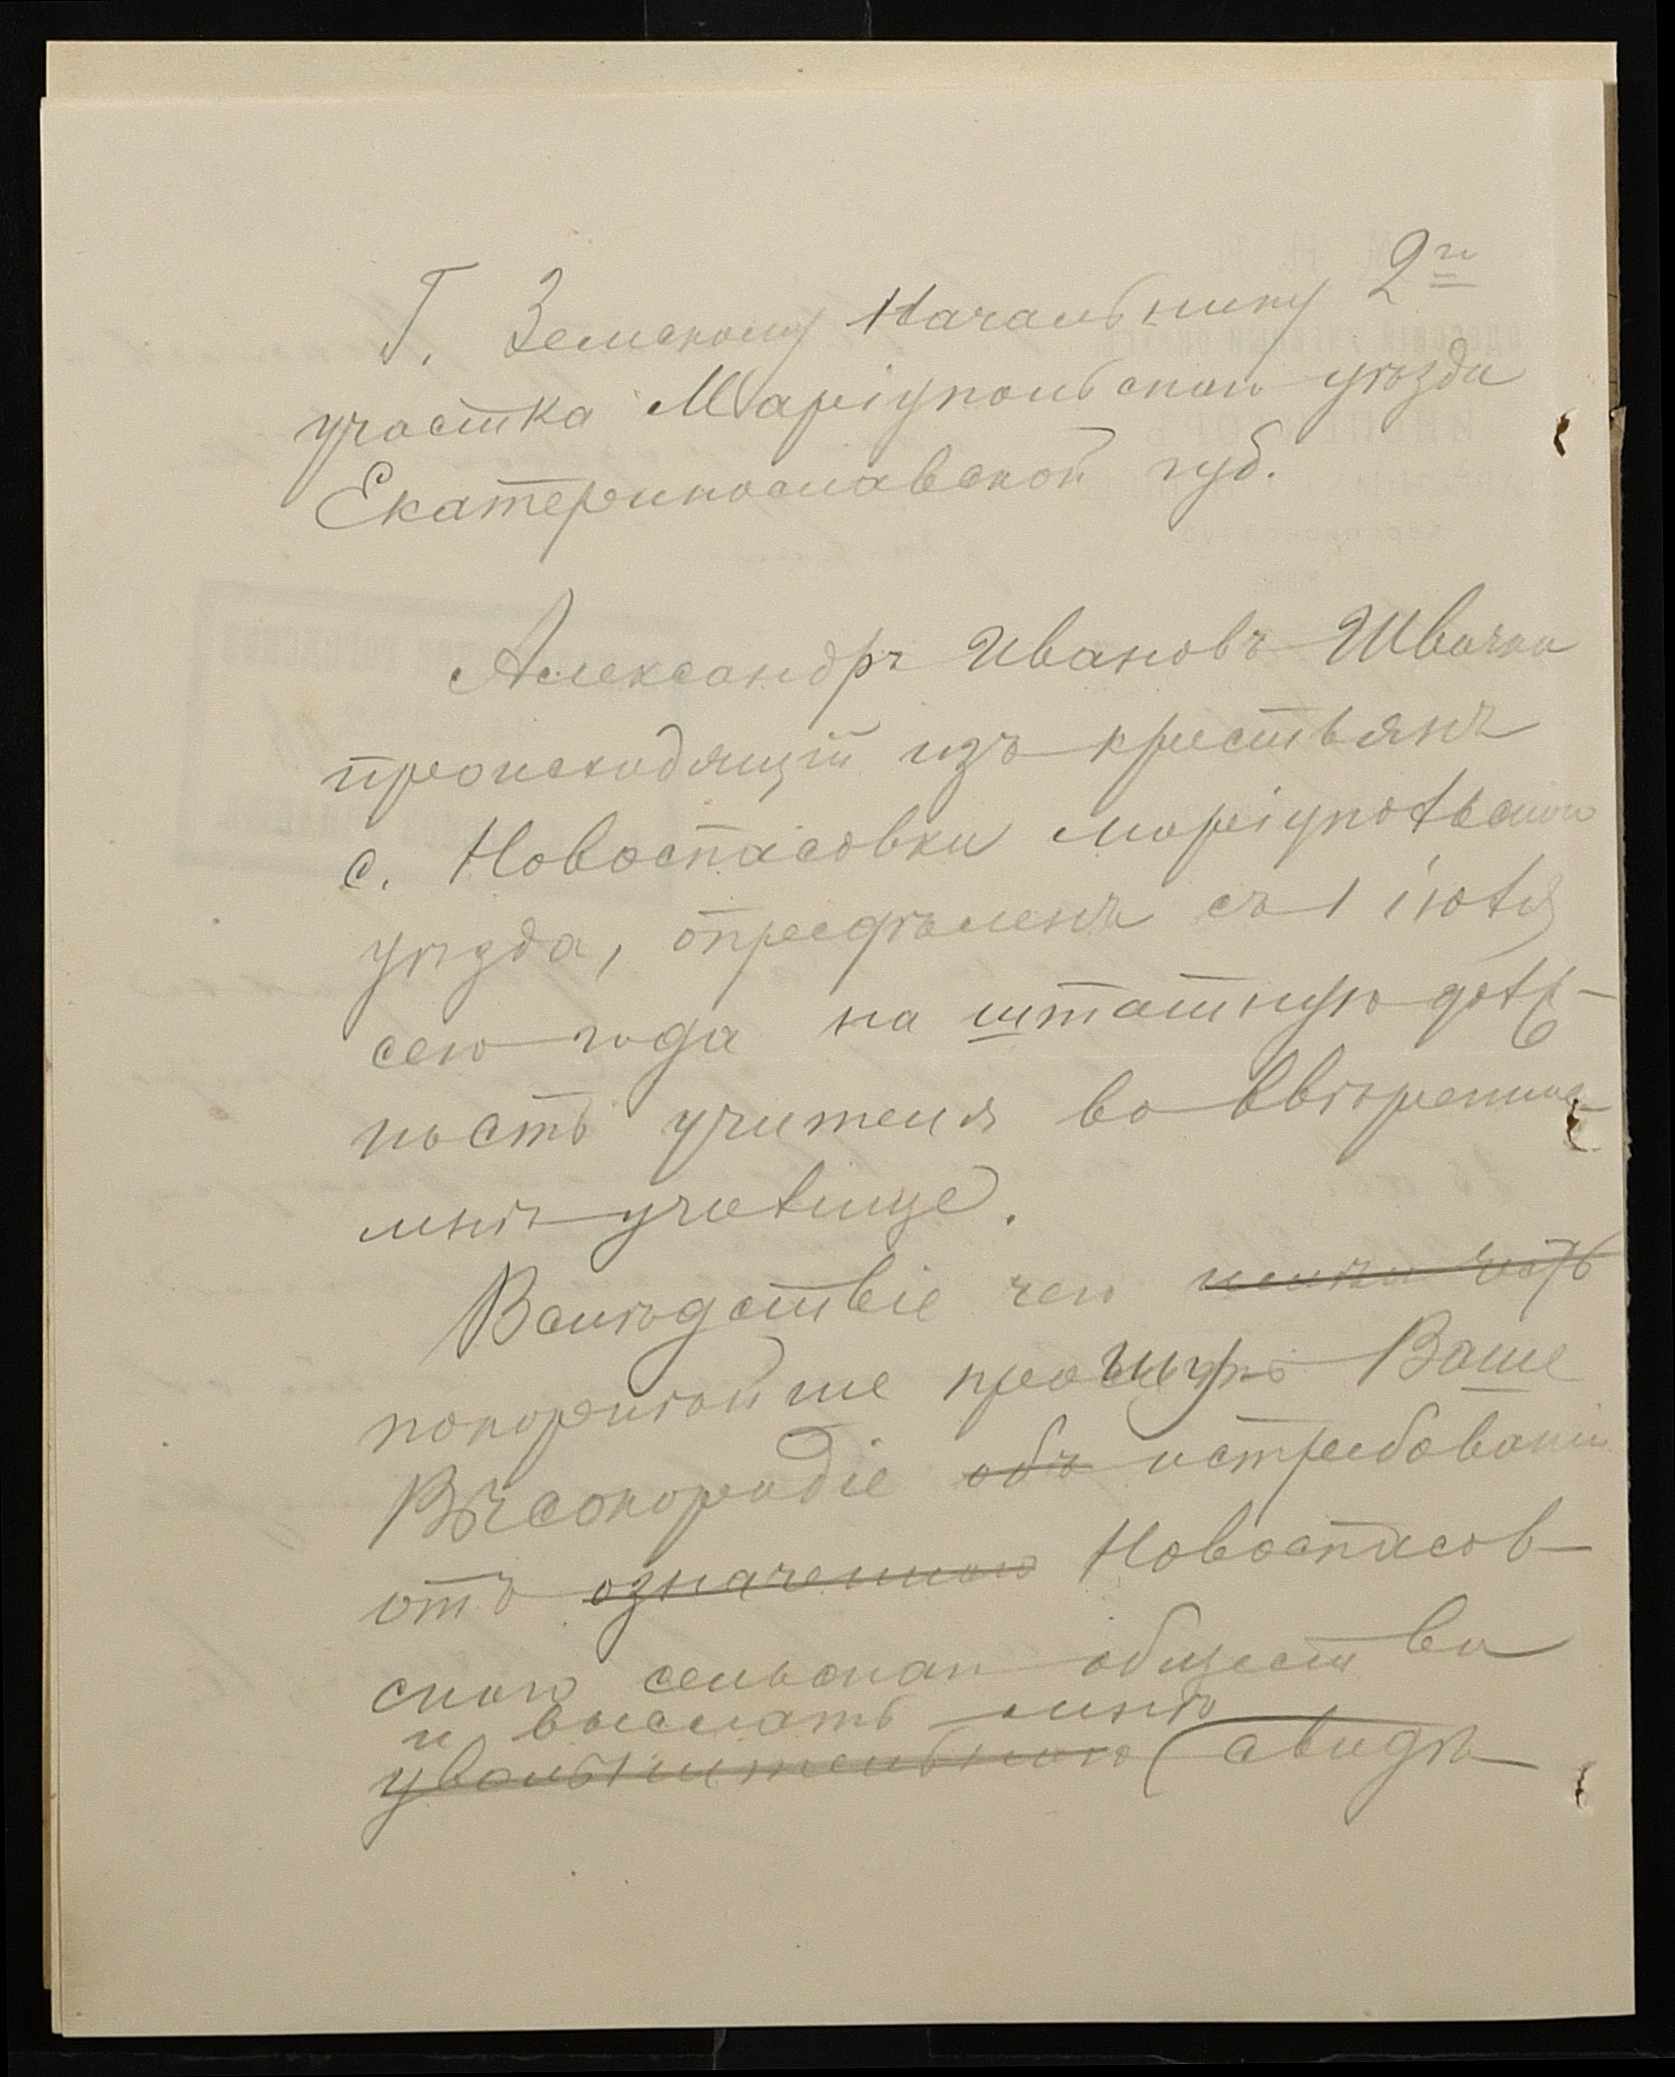 Г. Земскому Начальнику 2го
участка Маріупольскаго уѣзда
Екатеринославской губ.
Александръ Ивановъ Швачка
происходящій изъ крестьянъ
с. Новоспасовки Маріупольскаго
уѣзда, опредѣленъ съ 1 іюля
сего года на штатную долж-
ность учителя во ввѣренное
мнѣ училище.
Вслѣдствіе чего имѣю честь
покорнѣйше прошу Ваше
Высокородіе объ истребованіи
отъ означеннаго Новоспасов-
скаго сельскаго общества
и выслать мнѣ
увольнительнаго свидѣ-